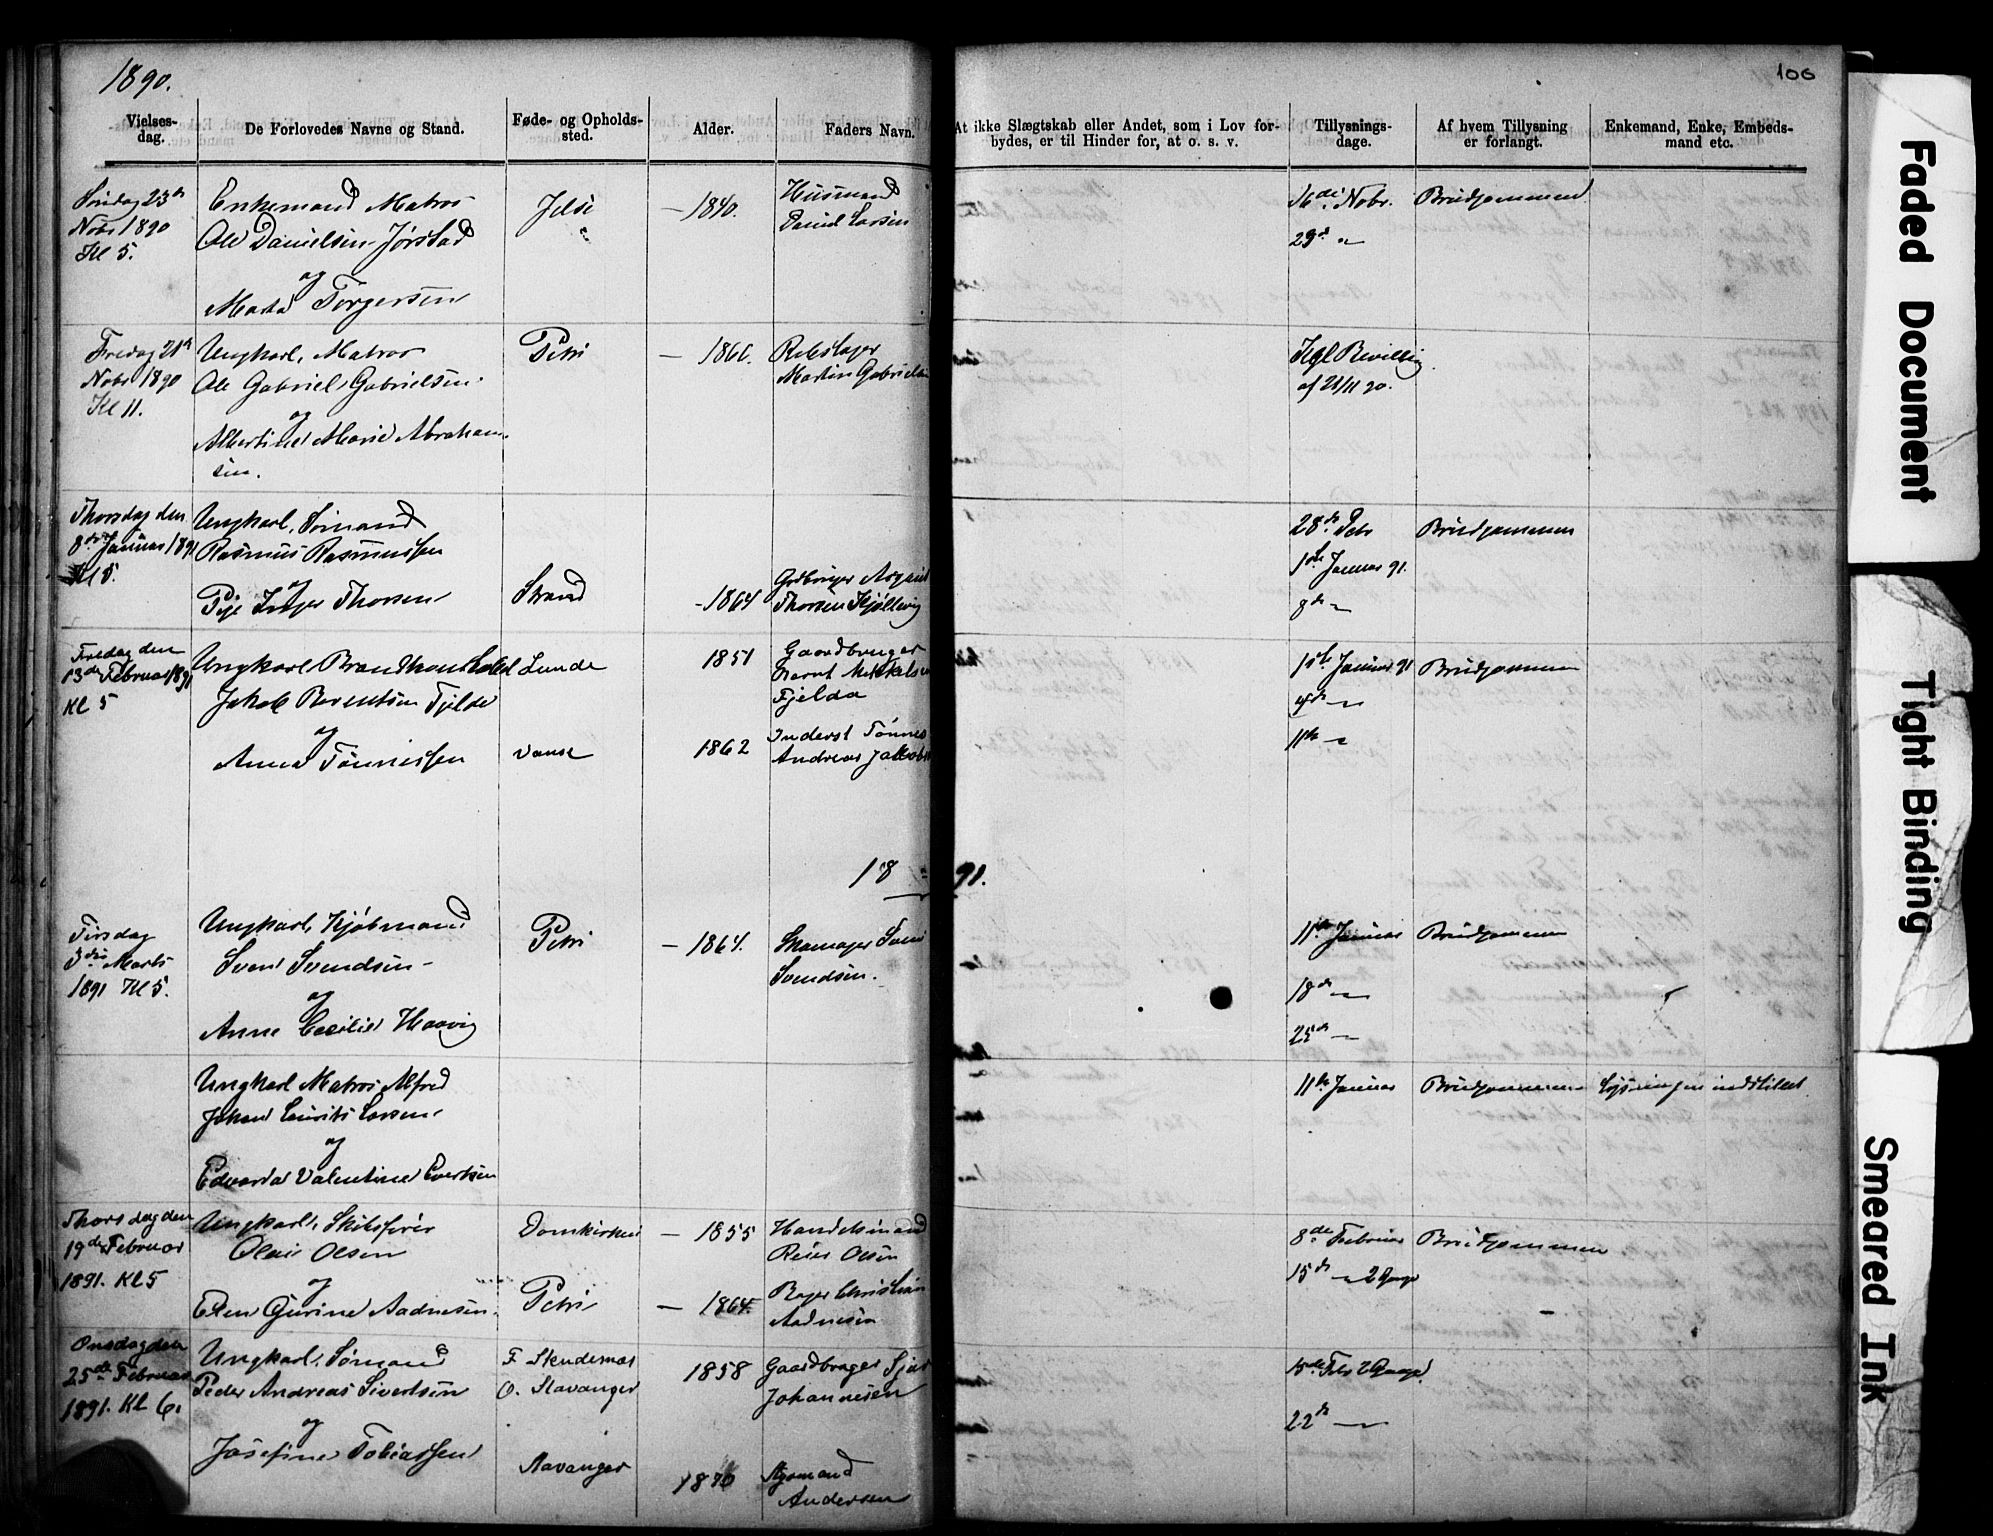 1890.
106
Vielses-
dag.
De Forlovedes Navne og Stand.
Føde- og Opholds-
sted.
Alder.
Faders Navn.
At ikke Slægtskab eller Andet, som i Lov for-
bydes, er til Hinder for, at o. s. v.
Tillysnings-
dage.
Af hvem Tillysning
er forlangt.
Enkemand, Enke, Embeds-
mand etc.
Søndag 23de
Nobr 1890
Kl 5.
Enkemand Matros
Ole Danielsen Jørstad
og
Marta Torgersen
Jelse
— 1840.
Husmand
Daniel Larsen
16de Nobr.
23d "
Brudgommen
Fredag 21de
Nobr 1890
Kl 11.
Ungkarl, Matros
Ole Gabriel Gabrielsen.
og
Albertine Marie Abraham-
sen.
Petri
— 1866.
Rebslager
Martin Gabrielsen
Kgl Bevilling
af 21/11 90.
Thorsdag den
8de Januar 1891
Kl 5.
Ungkarl, Sømand
Rasmus Rasmussen
og
Inger Thorsen
Strand
- 1864
Grdbruger
Thorsen Kjøllevig
28de
1ste Januar 91.
8de "
Brudgommen
Fredag den
13de Februar 1891
Kl 5
Ungkarl
Jakob Berentsen Fjelde
og
Anna Tønnessen
Lunde
Vanse
1851
1862
Gaardbruger
Bernt Mikkelsen
Fjelda
Inderst Tønnes
Andreas Jakobs
1ste Januar 91
4de "
11te "
Brudgommen
1891.
Tirsdag
3die Marts
1891 Kl 5.
Ungkarl, Kjøbmand
Svend Svendsen
og
Anne Cecilie Haavig
Petri
— 1864.
Skomager Svend
Svendsen.
11te Januar
18de "
25de "
Brudgommen
Ungkarl Matros Alfred
Johan Laurits Larsen
og
Edvarda Valentine Evertsen
11te Januar
Brudgommen
Lysningen indstillet.
Thorsdag den
19de Februar
1891. Kl 5
Ungkarl, Skibsfører
Olaus Olsen
og
Elen Gurine Aadnesen.
Domkirken
Petri
— 1855
— 1864.
Handelsmand
Reier Olsen
Bager Christian
Aadnesen
8de Februar
15de " 2 Gange
Brudgommen
Onsdag den
25de Februar
1891. Kl 6.
Ungkarl. Sømand
Peder Andreas Sivertsen
og
Josefine Tobiassen
F. Skudesnæs
O. Stavanger
Stavanger
1858
1870
Gaardbruger
Johannesen
Andersen
15de Febr 2 Gange
22de "
Faded Document
Tight Binding
Smeared Ink